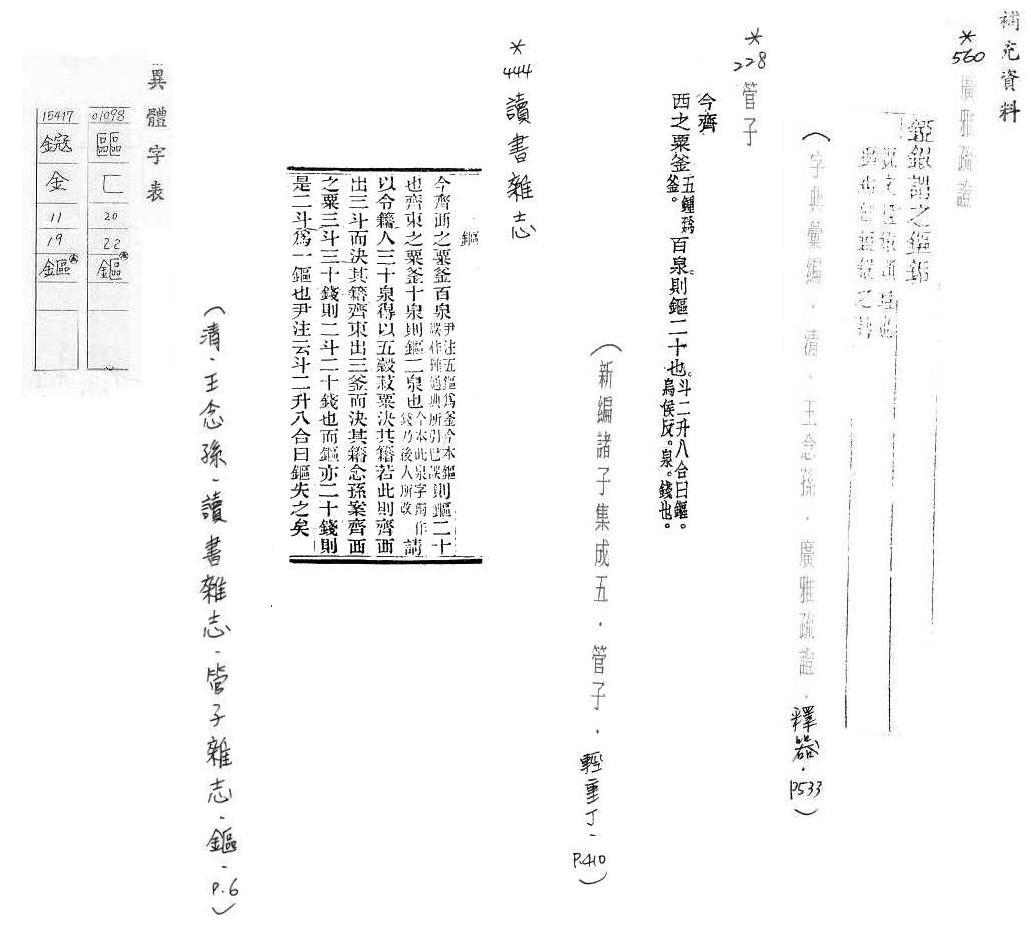 補充資料
*560 廣雅疏證
鋞鍜謂之鏂銗
(字典彙編．清．王念孫．廣雅疏證．釋器．P533)
*228 管子
今齊
西之粟釜五鏂爲釜。百泉。則鏂二十也。斗二升八合曰鏂。烏侯反。泉。錢也。
(新編諸子集成五．管子．輕重丁．P.410)
*444 讀書雜志
鏂
今齊西之粟釜百泉尹注五鏂爲釜今本鏂誤作鍾通典所引已誤則鏂二十
也齊東之粟釜十泉則鏂二泉也今本此泉字獨作錢乃後人所改請
以令籍人三十泉得以五穀菽粟決其籍若此則齊西
出三斗而決其籍齊東出三釜而決其籍念孫案齊西
之粟三斗三十錢則二斗二十錢也而鏂亦二十錢則
是二斗爲一鏂也尹注云斗二升八合曰鏂失之矣
(清．王念孫．讀書雜志．管子雜志．鏂．P.6)
異體字表
01098
匚
20
22
鏂
15417
金
11
19
鏂